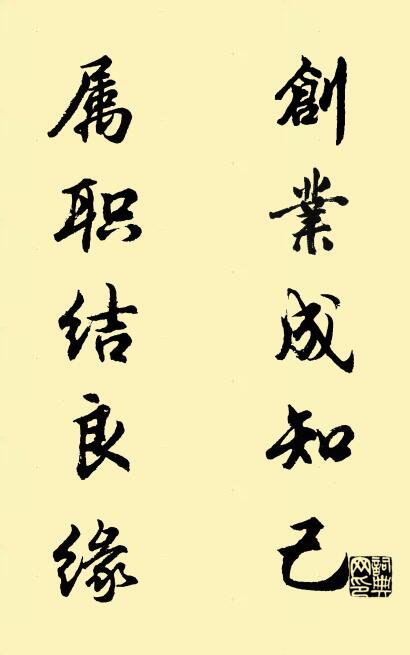 創業成知己
属职结良缘
詞典
网印